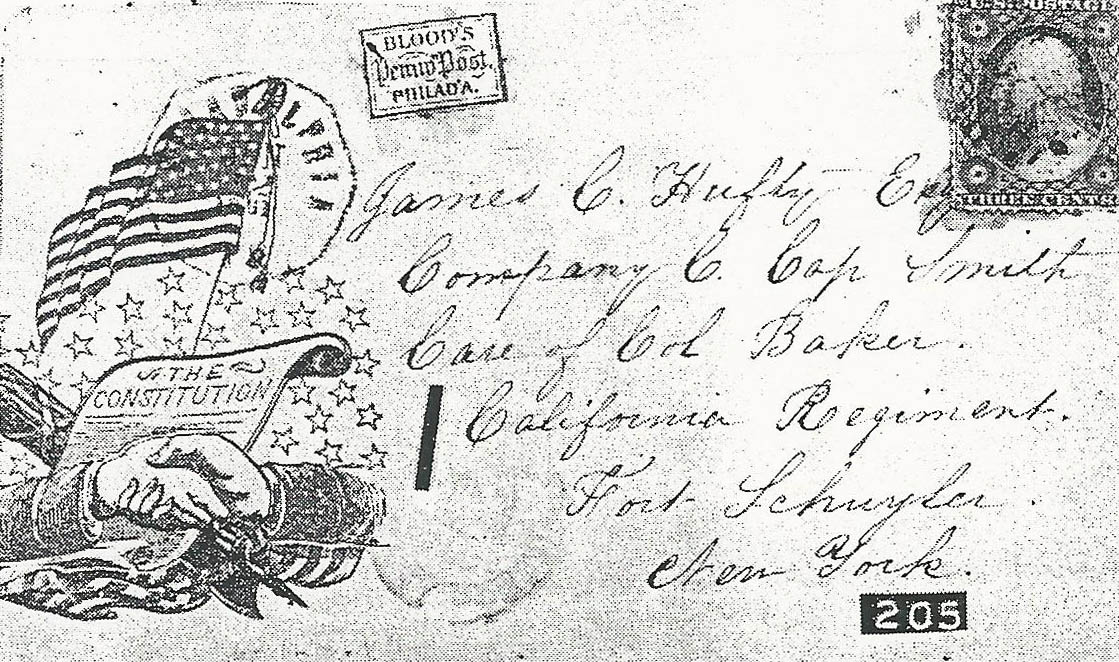 BLOOD'S
Penny Post.
PHILAD'A.
U.S. POSTAGE
THREE CENTS
James C. Hufty Esq
Company C. Cap Smith
Care of Col Baker.
California Regiment.
Fort Schuyler.
New York.
THE
CONSTITUTION
205